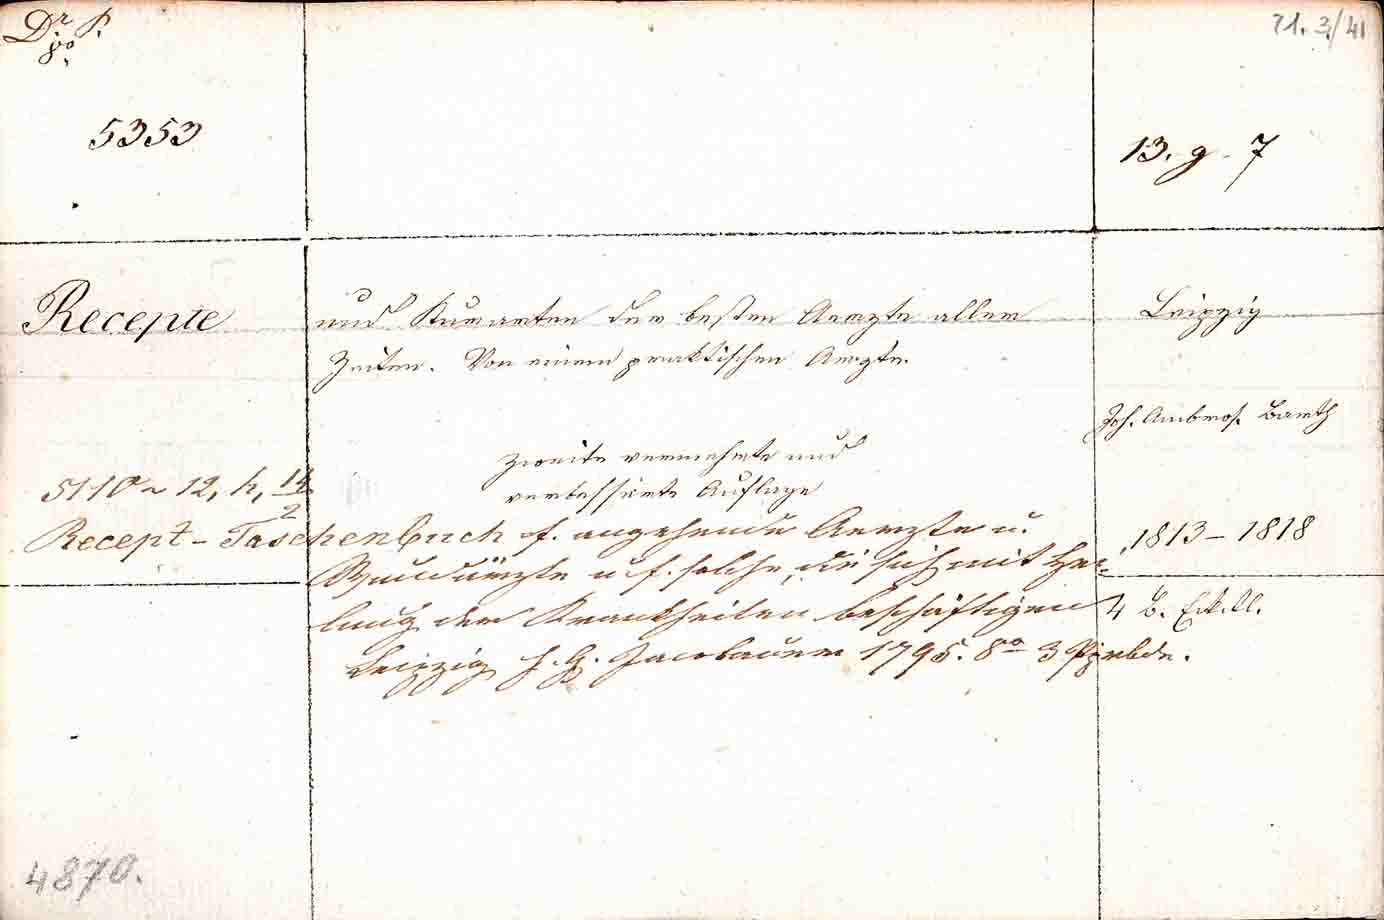 Dr. P.
8º.
71. 3/41
5353
13. g. 7
Recepte
und Kurarten der besten Aerzte aller
Zeiten. Von einem praktischen Aerzte.
Leipzig
Joh. Ambros. Barth
Zweite vermehrte und
verbesserte Auflage
1813 – 1818
4 B.
5110 ~ 12, h, 14/2
Recept-Taschenbuch f. angehende Aerzte u.
Wundärzte u. f. solche, die sich mit Hei-
lung der Krankheiten beschäftigen
Leipzig 1795. 8º 3
4870.